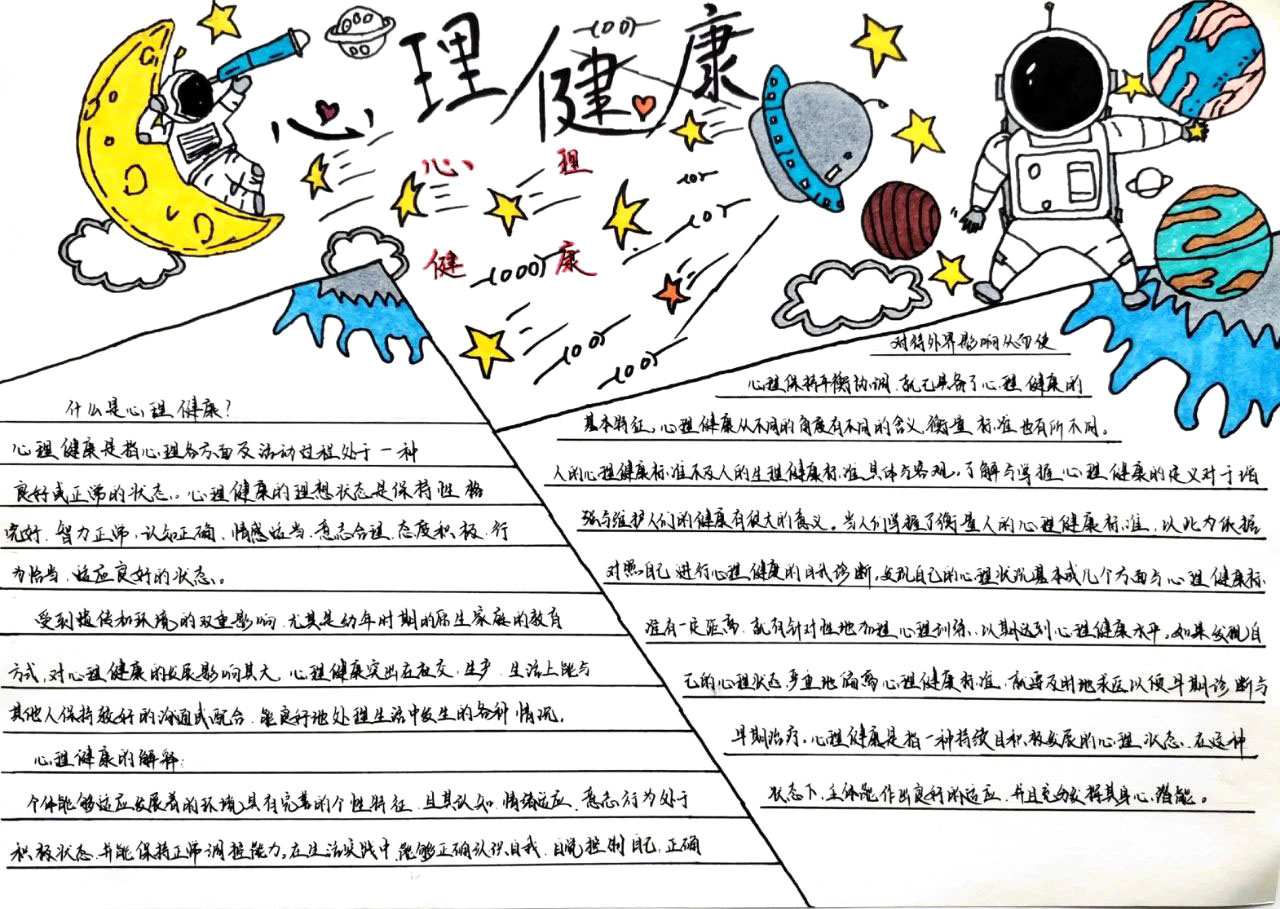 心理健康
心 理
健 康
什么是心理健康?
心理健康是指心理各方面及活动过程处于一种
良好或正常的状态。心理健康的理想状态是保持性格
完好、智力正常、认知正确、情感适当、意志合理、态度积极、行
为恰当、适应良好的状态。
受到遗传和环境的双重影响,尤其是幼年时期的原生家庭的教育
方式,对心理健康的发展影响甚大,心理健康突出在社交、生产、生活上能与
其他人保持较好的沟通或配合,能良好地处理生活中发生的各种情况。
心理健康的解释:
个体能够适应发展着的环境,具有完善的个性特征,且其认知、情绪反应、意志行为处于
积极状态,并能保持正常调控能力。在生活实践中,能够正确认识自我,自觉控制自己,正确
对待外界影响从而使
心理保持平衡协调,就已具备了心理健康的
基本特征。心理健康从不同的角度有不同的含义,衡量标准也有所不同。
人的心理健康标准不及人的生理健康标准具体与客观。了解与掌握心理健康的定义对于增
强与维护人们的健康有很大的意义。当人们掌握了衡量人的心理健康标准,以此为依据
对照自己进行心理健康的自我诊断,发现自己的心理状况某个或几个方面与心理健康标
准有一定距离,就有针对性地加强心理训练,以期达到心理健康水平。如果发现自
己的心理状态严重地偏离心理健康标准,就要及时地求医,以便早期诊断与
早期治疗。心理健康是指一种持续且积极发展的心理状态,在这种
状态下,主体能作出良好的适应,并且充分发挥其身心潜能。